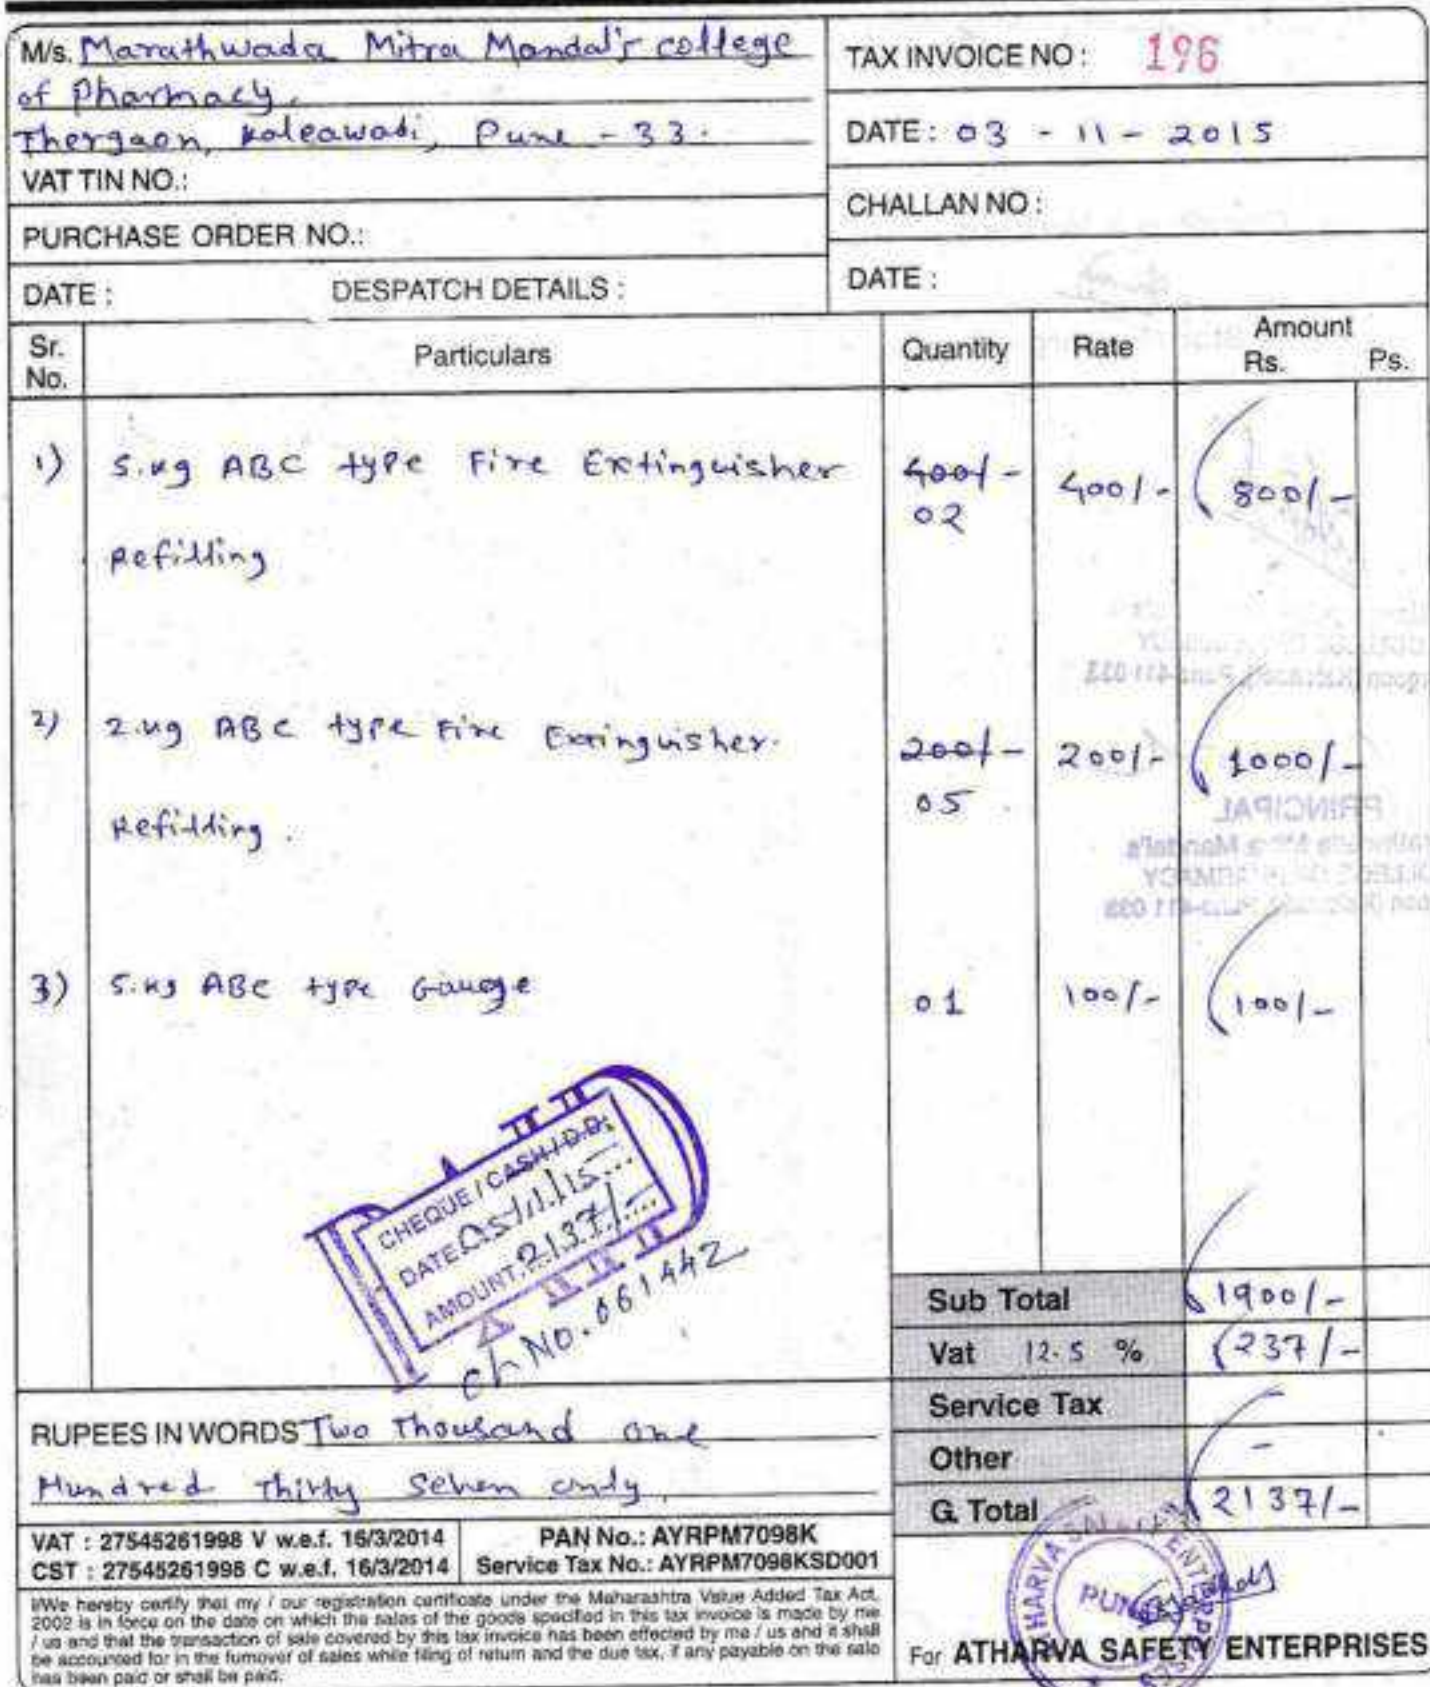 M/s. Marathwada Mitra Mandal's college
of Pharmacy,
Thergaon, Kaleawadi, Pune - 33.
VAT TIN NO.:
PURCHASE ORDER NO.:
DATE : DESPATCH DETAILS :
TAX INVOICE NO : 196
DATE : 03 - 11 - 2015
CHALLAN NO :
DATE :
Sr. No. Particulars Quantity Rate Amount Rs. Ps.
1) 5.kg ABC type Fire Extinguisher 400/- 02 400/- 800/-
Refilling
2) 2.kg ABC type Fire Extinguisher. 200/- 05 200/- 1000/-
Refilling.
3) 5.kg ABC type Gauge 01 100/- 100/-
CHEQUE / CASH / D.D.
DATE 05/11/15
AMOUNT 2137/-
ch No. 061442
Sub Total 1900/-
Vat 12.5 % 237/-
Service Tax
Other -
G. Total 2137/-
RUPEES IN WORDS Two Thousand One
Hundred Thirty Seven only.
VAT : 27545261998 V w.e.f. 16/3/2014
CST : 27545261998 C w.e.f. 16/3/2014
PAN No.: AYRPM7098K
Service Tax No.: AYRPM7098KSD001
I/We hereby certify that my / our registration certificate under the Maharashtra Value Added Tax Act,
2002 is in force on the date on which the sales of the goods specified in this tax invoice is made by me
/ us and that the transaction of sale covered by this tax invoice has been effected by me / us and it shall
be accounted for in the turnover of sales while filing of return and the due tax, if any payable on the sale
has been paid or shall be paid.
PUNE
For ATHARVA SAFETY ENTERPRISES